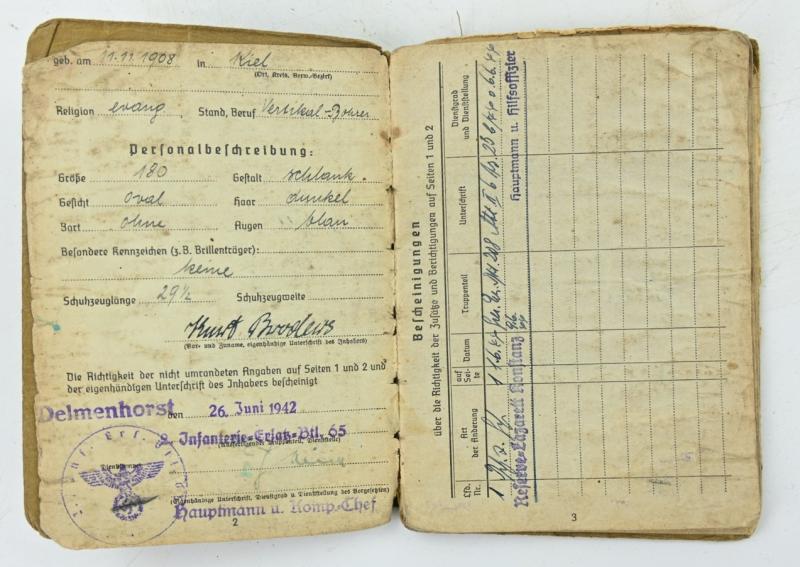 geb. am 11.11.1908 in Kiel
(Ort, Kreis, Verw.-Bezirk)
Religion evang. Stand, Beruf Vertikal-Bohrer
Personalbeschreibung:
Größe 180 Gestalt schlank
Gesicht oval Haar dunkel
Bart ohne Augen blau
Besondere Kennzeichen (z.B. Brillenträger):
keine
Schuhzeuglänge 29½ Schuhzeugweite
Kurt
(Vor- und Zuname, eigenhändige Unterschrift des Inhabers)
Die Richtigkeit der nicht umrandeten Angaben auf Seiten 1 und 2 und
der eigenhändigen Unterschrift des Inhabers bescheinigt
Delmenhorst, den 26. Juni 1942
Infanterie-Ersatz-Btl. 65
(Ausfertigender Truppenteil, Dienststelle)
(Eigenhändige Unterschrift, Dienstgrad u. Dienststellung des Vorgesetzten)
Hauptmann u. Komp.-Chef
2
Bescheinigungen
über die Richtigkeit der Zusätze und Berichtigungen auf Seiten 1 und 2
Lfd. Nr.
Art der Änderung
auf Seite
Datum
Truppenteil
Unterschrift
Dienstgrad und Dienststellung
1
Reserve-Lazarett Konstanz
Hauptmann u. Hilfsoffizier
3